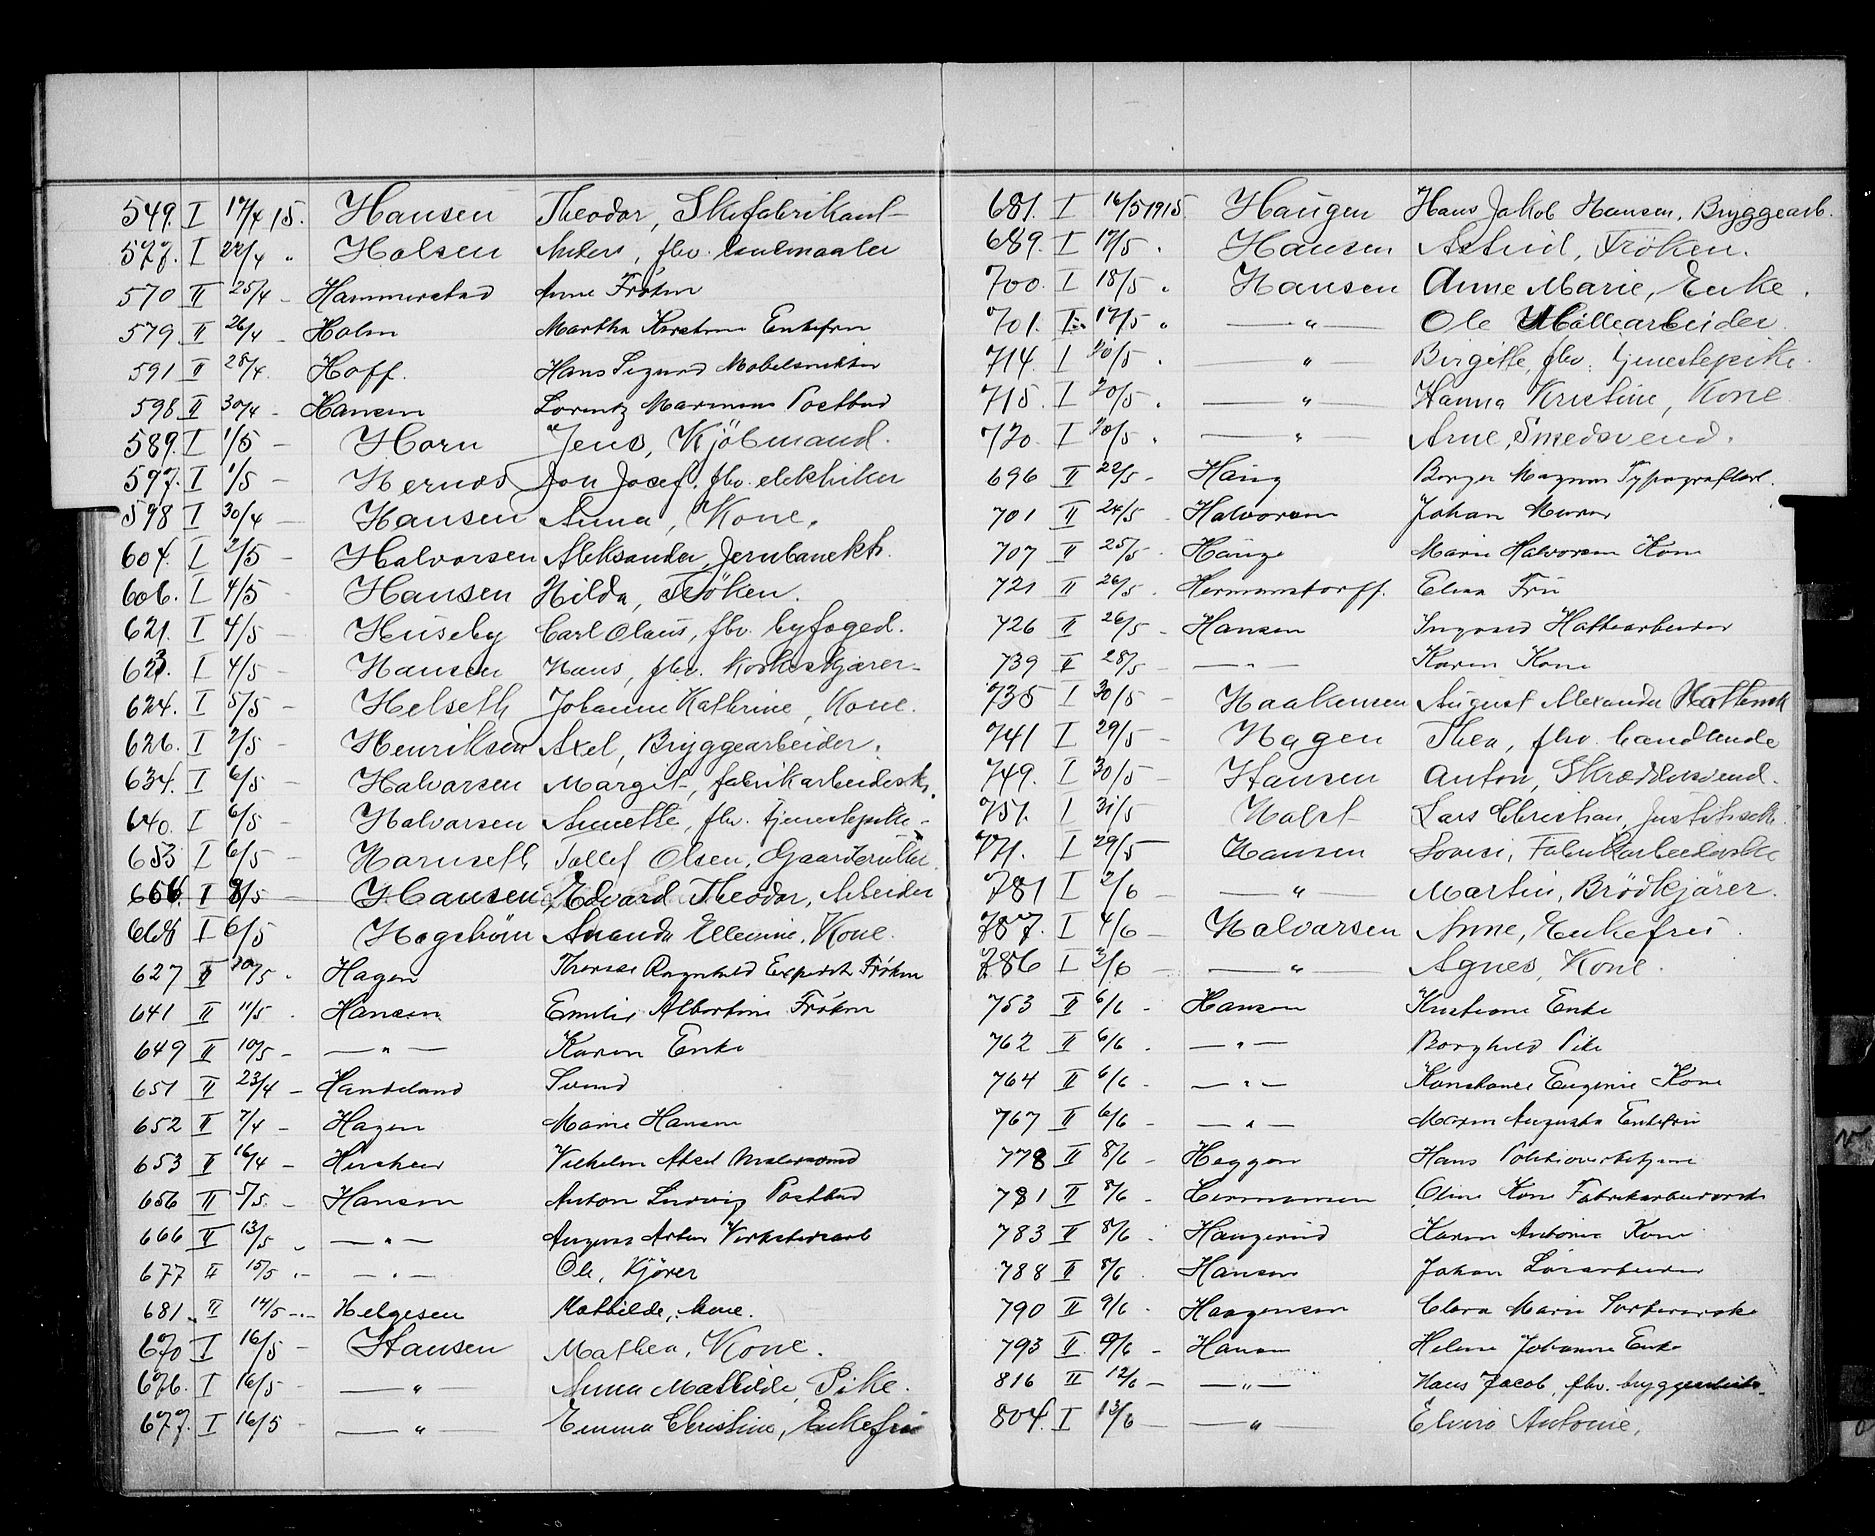 549. I 17/4 15. Hansen Theodor, Skofabrikant
577. I 22/4 " Holsen Anders, fhv.
570 II 25/4 - Hammerstad Anne Frøken
579 II 26/4 - Holm Martha Kirstine Enkefru
591 II 28/4. Hoff. Hans Sigurd Møbelsnekker
598 II 30/4 - Hansen Lorentz Marinius Postbud
589. I 1/5 - Horn Jens, Kjöbmand.
597. I 1/5 - Hernæs Jon Josef, fhv. elektriker
598 I 30/4 - Hansen Anna, Kone.
604. I 2/5 - Halvorsen Aleksander, Jernbaneekth.
606. I 4/5 - Hansen Hilda, Fröken.
621. I 4/5 - Huseby Carl Olaus, fhv. byfoged.
623. I 4/5 - Hansen Hans, fhv. korkeskjærer
624. I 5/5 - Helseth Johanne Kathrine, Kone.
626. I 2/5 - Henriksen Axel, Bryggearbeider.
634. I 6/5 - Halvorsen Margit, fabrikarbeidersk.
640. I 6/5 - Halvorsen Annette, fhv. tjenestepike -
653 I 6/5 - Haruseth Tollef Olsen, Gaardbruker
656. I 8/5 - Hansen Edvard Theodor, Arbeider
668 I 6/5 Hogsböm Ananda Elleonine, Kone.
627 II 10/5 . Hagen Therese Ragnhild Frøken
641 II 11/5 . Hansen Emilie Albertine Frøken
649 II 10/5 - — " — Karen Enke
651 II 23/4 - Handeland Svend
652 II 7/4 - Hagen Marie Hansen
653 II 16/4 - Vilhelm Aksel Malersvend
656 II 5/5. - Hansen Anton Ludvig Postbud
666 II 13/5 " — " — Verkstedsarb
677 II 15/5 .- — " — Ole, Kjörer
681. II 14/5 -.- Helgesen Mathilde, kone.
670 I 16/5 - Hansen Mathea, Kone.
676. I 16/5 - — " — Anna Mathilde, Pike.
677. I 16/5 - — " — Emma Christine, Enkefru
681. I 16/5 1915. Haugen Hans Jakob Hansen, Bryggearb.
689. I 17/5 . Hansen Astrid, Fröken.
700. I 18/5 " Hansen Anne Marie, Enke.
701. I 17/5 " — " — Ole Möllearbeider.
714. I 20/5 . — " — Birgitte, fhv. tjenestepike.
715. I 20/5 " — " — Hanna Kristine, Kone
720. I 20/5 " — " — Arne, Smedsvend.
696 II 22/5 - Haug Borger Magnus Typograflærl.
701 II 24/5 - Halvorsen Johan Murer
707 II 25/5 . Hauge Marie Halvorsen Kone
721 II 26/5 . Hermanstorff. Elisa Fru
726 II 26/5 - Hansen Ingvard Hattearbeider
739 II 28/5 - — " — Karen Kone
735 I 30/5 - Haakensen August Alexander
741 I 29/5 - Hagen Thea, fhv. handlende
749. I 30/5 - Hansen Anton, Skræddersvend.
751. I 31/5 Holst Lars Christian,
771. I 29/5 - Hansen Lovise, Fabrikarbeiderske
781 I 2/6 - — " — Martin, Brödkjörer.
787. I 4/6 - Halvorsen Anne, Enkefru.
786 I 3/6 - — " — Agnes, Kone.
753 II 6/6 - Hansen Kristiane Enke
762 II 6/6 . — " — Borghild Pike
764 II 6/6 - — " — Konstance Eugenie Kone
767 II 6/6 - — " — Maren Augusta Enkefru
778 II 8/6 - Heggen Hans Politioverbetjent
781 II 8/6 - Hermansen Oline Kone Fabrikarbeiderske
783 II 8/6 . Haugerud Karen Antonie Kone
788 II 8/6 . Hansen Johan Løsarbeider
790 II 9/6 . Haagensen Clara Marie
793 II 9/6 - Hansen Helene Johanne Enke
816 II 12/6 - — " — Hans Jacob, fhv. bryggearbeider
804. I 13/6 - — " — Elvira Antonie,